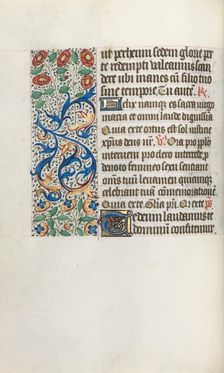 ut perhennem sedem glorie per
te redempti valeamus scan
dere ubi manes cu filio tuo
sine tempore. Tu autem. R.
Felix namque es sacra virgo
maria et omni laude dignissima
Quia ex te ortus est sol iusticie
xpus deus nr. V. Ora pro populo
interveni pro clero intercede p
devoto femineo sexu sentiant
omnes tuum levamen quicumque
celebrant tuam comemorationem
Quia ex te. Gloria pri. Or ex te. ps
Te deum laudamus te
dominum confitemur